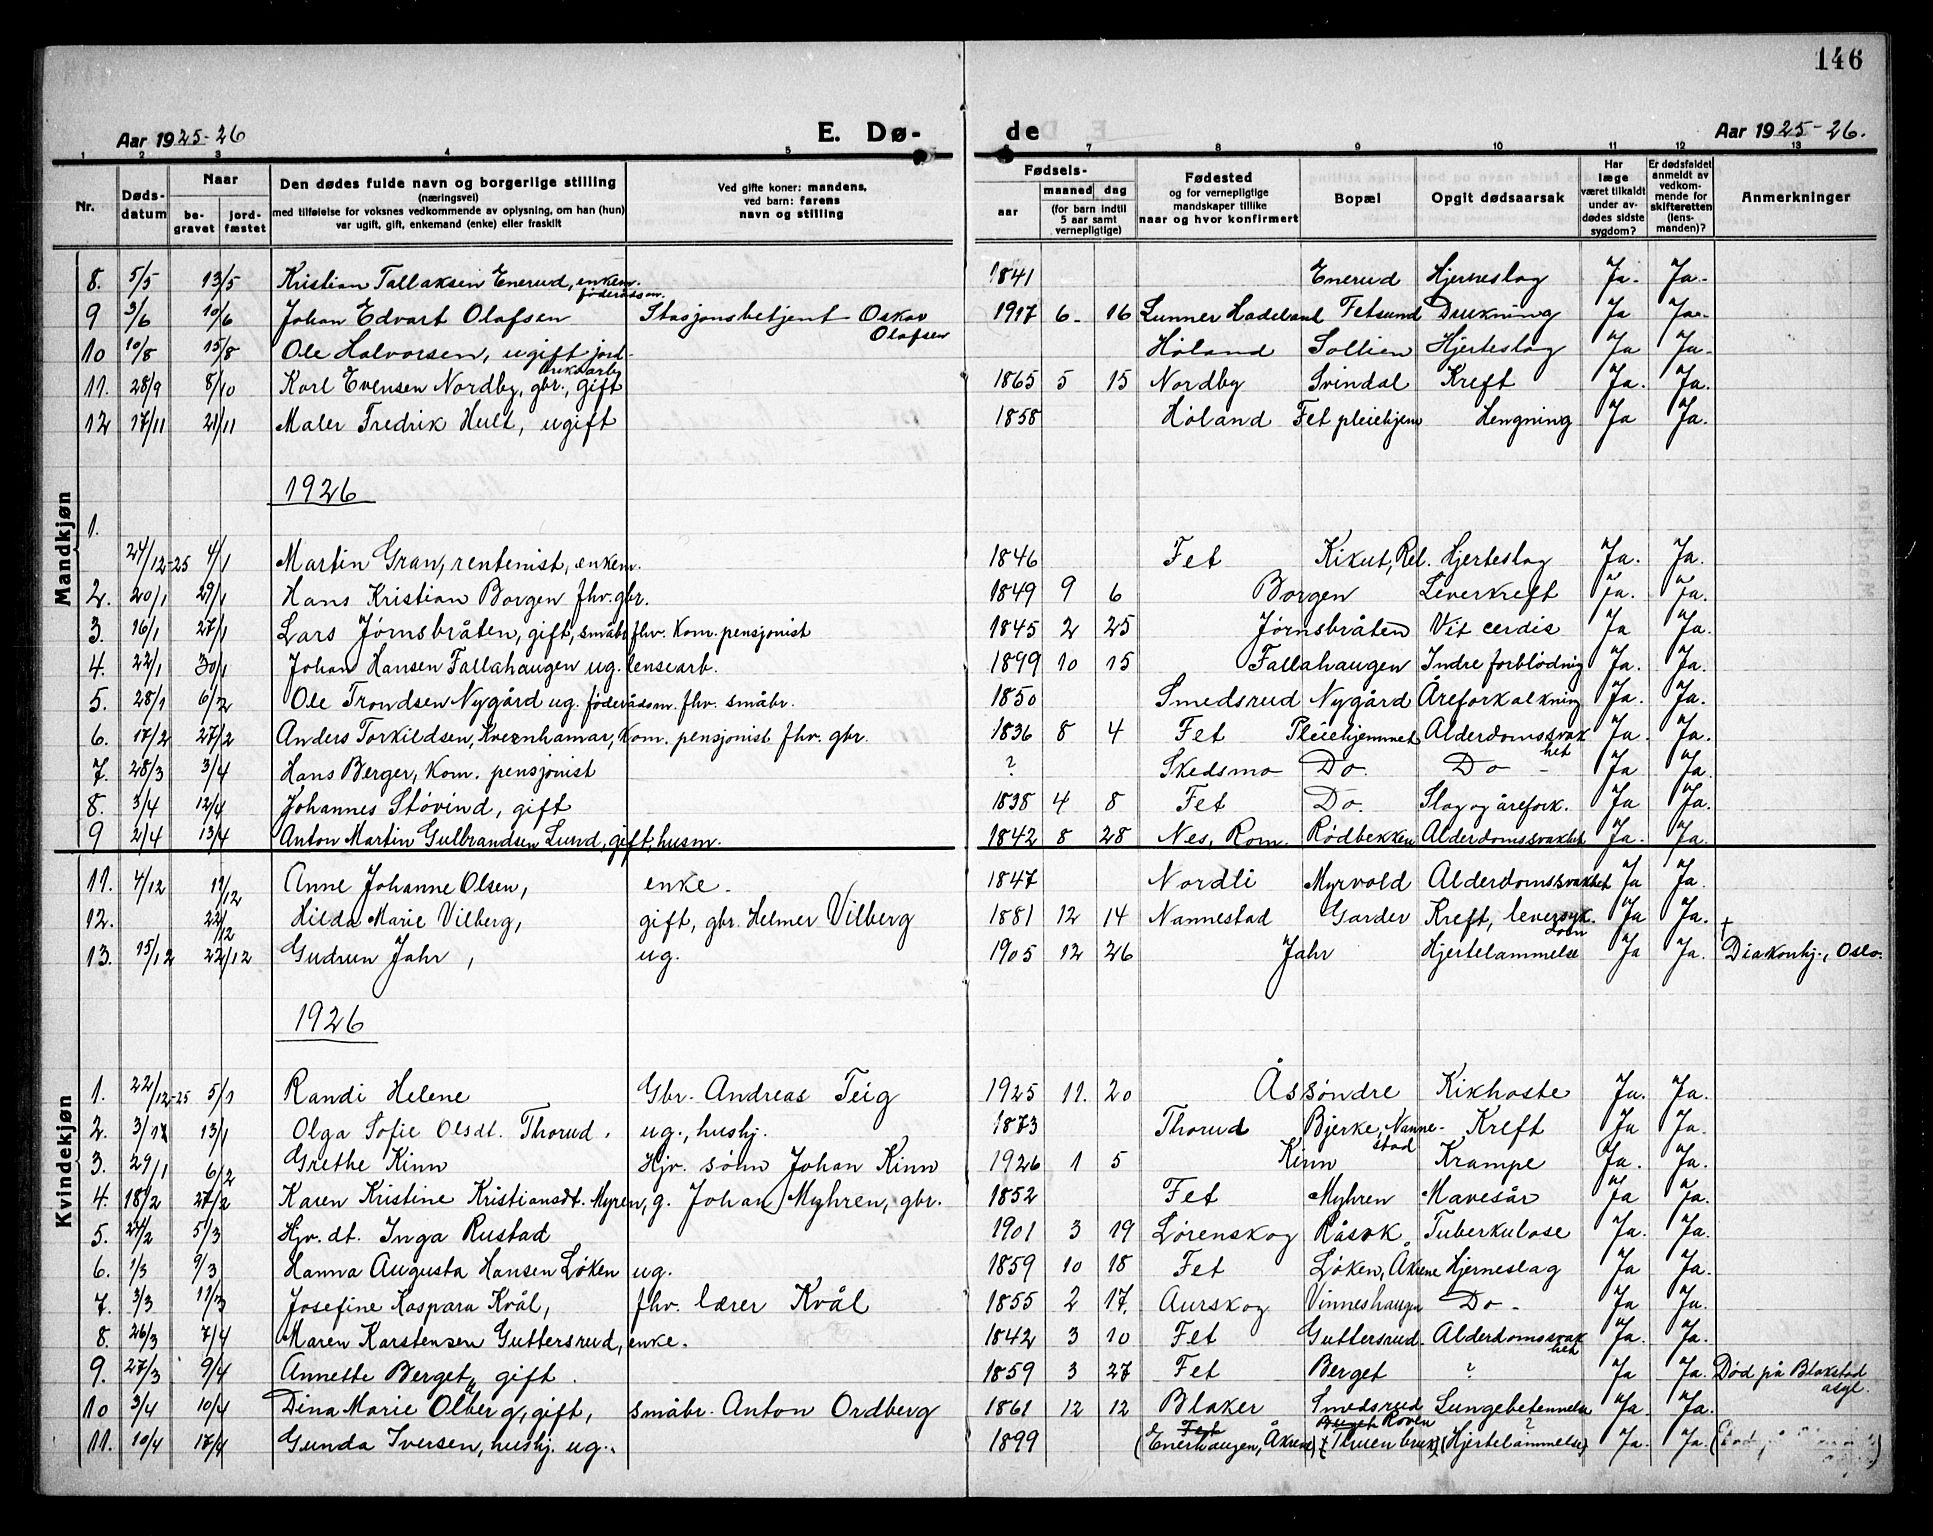 146
Aar 1925-26
E. Dø-
de
Aar 1925-26.
1 2 3 4 5 7 8 9 10 11 12 13
Nr.
Døds-
datum
Naar
be-
gravet
jord-
fæstet
Den dødes fulde navn og borgerlige stilling
(næringsvei)
med tilføielse for voksnes vedkommende av oplysning, om han (hun)
var ugift, gift, enkemand (enke) eller fraskilt
Ved gifte koner: mandens,
ved barn: farens
navn og stilling
Fødsels-
aar
maaned dag
(for barn indtil
5 aar samt
vernepligtige)
Fødested
og for vernepligtige
mandskaper tillike
naar og hvor konfirmert
Bopæl
Opgit dødsaarsak
Har
læge
været tilkaldt
under av-
dødes sidste
sygdom?
Er dødsfaldet
anmeldt av
vedkom-
mende for
skifteretten
(lens-
manden)?
Anmerkninger
Mandkjøn
8. 5/5 13/5 Kristian Tallaksen Enerud, enkem. føderådsm. 1841 Enerud Hjerneslag Ja. Ja.
9 3/6 10/6 Johan Edvart Olafsen Stasjonsbetjent Oskar Olafsen 1917 6 16 Lunner Hadeland Fetsund Drukning Ja Ja.
10 10/8 15/8 Ole Halvorsen, ugift jord- Høland Sollien Hjerteslag Ja Ja.
11. 28/9 8/10 Karl Evensen Nordby, gbr., gift 1865 5 15 Nordby Svindal Kreft Ja. Ja.
12 17/11 21/11 Maler Fredrik Hult, ugift 1858 Høland Fet pleiehjem Hengning Ja Ja.
1926
1. 24/12-25 4/1 Martin Gran, rentenist, enkem. 1846 Fet Kikut, Rel. Hjerteslag Ja. Ja.
2. 20/1 29/1 Hans Kristian Borgen fhv. gbr. 1849 9 6 Borgen Leverkreft Ja. Ja.
3. 16/1 27/1 Lars Jørnsbråten, gift, småbr. fhv. Kom. pensjonist 1845 2 25 Jørnsbråten Vit cerdis Ja Ja.
4. 22/1 30/1 Johan Hansen Fallahaugen ug. lensearb. 1899 10 15 Fallahaugen Indre forblødning Ja. Ja.
5. 28/1 6/2 Ole Trondsen Nygård ug. føderådsm. fhv. småbr. 1850 Smedsrud Nygård Åreforkalkning Ja. Ja.
6. 17/2 27/2 Anders Torkildsen, Kvernhamar, Kom. pensjonist fhv. gbr. 1836 8 4 Fet Pleiehjemmet Alderdomssvakhet Ja. Ja.
7. 28/3 3/4 Hans Berger, Kom. pensjonist ? Skedsmo Do. Do - Ja Ja.
8. 3/4 12/4 Johannes Støvind, gift 1838 4 8 Fet Do. Slag og årefork. Ja Ja.
9 2/4 13/4 Anton Martin Gulbrandsen Lund, gift, husm. 1842 8 28 Nes, Rom. Rødbekken Alderdomssvakhet Ja. Ja.
Kvindekjøn
11. 4/12 11/12 Anne Johanne Olsen, enke. 1847 Nordli Myrvold Alderdomssvakhet Ja Ja.
12. 22/12 Hilda Marie Vilberg, gift, gbr. Helmer Vilberg 1881 12 14 Nannestad Garder Kreft, leversykdom Ja Ja.
13. 15/12 22/12 Gudrun Jahr, ug. 1905 12 26 Jahr Hjertelammelse Ja Ja. + Diakonhj., Oslo.
1926
1. 22/12-25 5/1 Randi Helene Gbr. Andreas Teig 1925 11. 20 Åssøndre Kikhoste Ja. Ja.
2. 3/1 13/1 Olga Sofie Olsdt. Thorud. ug., hushj. 1873 Thorud Bjerke, Nannestad Kreft Ja Ja.
3. 29/1 6/2 Grethe Kinn Hjv. sønn Johan Kinn 1926 1 5 Kinn Krampe Ja. Ja.
4. 18/2 27/2 Karen Kristine Kristiansdt. Myren, g. Johan Myhren, gbr. 1852 Fet Myhren Mavesår Ja Ja.
5. 24/2 5/3 Hjv. dt. Inga Rustad 1901 3 19 Lørenskog Råsok Tuberkulose Ja. Ja.
6. 1/3 9/3 Hanna Augusta Hansen Løken ug. 1859 10 18 Fet Løken, Åkrene Hjerneslag Ja Ja.
7. 3/3 11/3 Josefine Kaspara Kvål, fhv. lærer Kvål 1855 2 17. Aurskog Vinneshaugen Do - Ja Ja.
8. 26/3 7/4 Maren Karstensen Guttersrud, enke. 1842 3 10 Fet Guttersrud. Alderdomssvakhet Ja. Ja.
9. 27/3 9/4 Annette Berget, gift. 1859 3 27 Fet Berget ? Ja Ja. Død på Blakstad asyl.
10 3/4 10/4 Dina Marie Olberg, gift, småbr. Anton Ordberg 1861 12 12 Blaker Smedsrud Lungebetennelse Ja. Ja.
11. 10/4 17/4 Gunda Iversen, hushj. ug. 1899 Fet (Enerhaugen, Åkrene) Roven ? (Hjertelammelse) Ja. Ja.